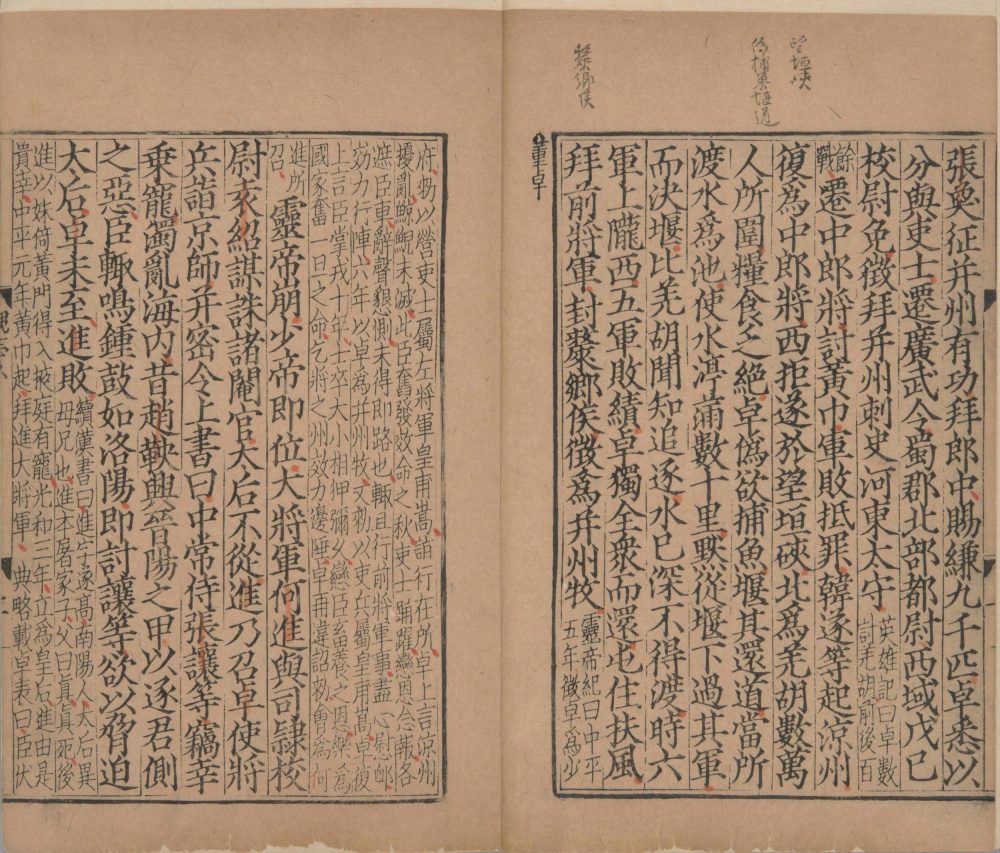 望垣硤
僞捕魚堰道
斄鄉侯
張奐征并州有功拜郎中賜縑九千匹卓悉以
分與吏士遷廣武令蜀郡北部都尉西域戊己
校尉免徵拜并州刺史河東太守
英雄記曰卓數
討羌胡前後百
餘
戰
遷中郎將討黃巾軍敗抵罪韓遂等起涼州
復爲中郎將西拒遂於望垣硤北爲羌胡數萬
人所圍糧食乏絕卓僞欲捕魚堰其還道當所
渡水爲池使水渟滿數十里默從堰下過其軍
而決堰比羌胡聞知追逐水已深不得渡時六
軍上隴西五軍敗績卓獨全衆而還屯住扶風
拜前將軍封斄鄉侯徵爲并州牧
靈帝紀曰中平
五年徵卓爲少
董卓
府勑以營吏士屬左將軍皇甫嵩詣行在所卓上言涼州
擾亂鯨鯢未滅此臣奮發效命之秋吏士踴躍戀恩念報各
遮臣車辭聲懇惻未得即路也輒且行前將軍事盡心慰卹
効力行陣六年以卓爲并州牧又勑以吏兵屬皇甫嵩卓復
上言臣掌戎十年士卒大小相狎彌久戀臣畜養之恩樂爲
國家奮一旦之命乞將之州效力邊陲卓再違詔勑會爲何
進所
召
靈帝崩少帝即位大將軍何進與司隸校
尉袁紹謀誅諸閹官太后不從進乃召卓使將
兵詣京師并密令上書曰中常侍張讓等竊幸
乘寵濁亂海內昔趙鞅興晉陽之甲以逐君側
之惡臣輒鳴鍾鼓如洛陽即討讓等欲以脅迫
太后卓未至進敗
續漢書曰進字遂高南陽人太后異
母兄也進本屠家子父曰眞眞死後
進以妹倚黃門得入掖庭有寵光和三年立爲皇后進由是
貴幸中平元年黃巾起拜進大將軍 典略載卓表曰臣伏